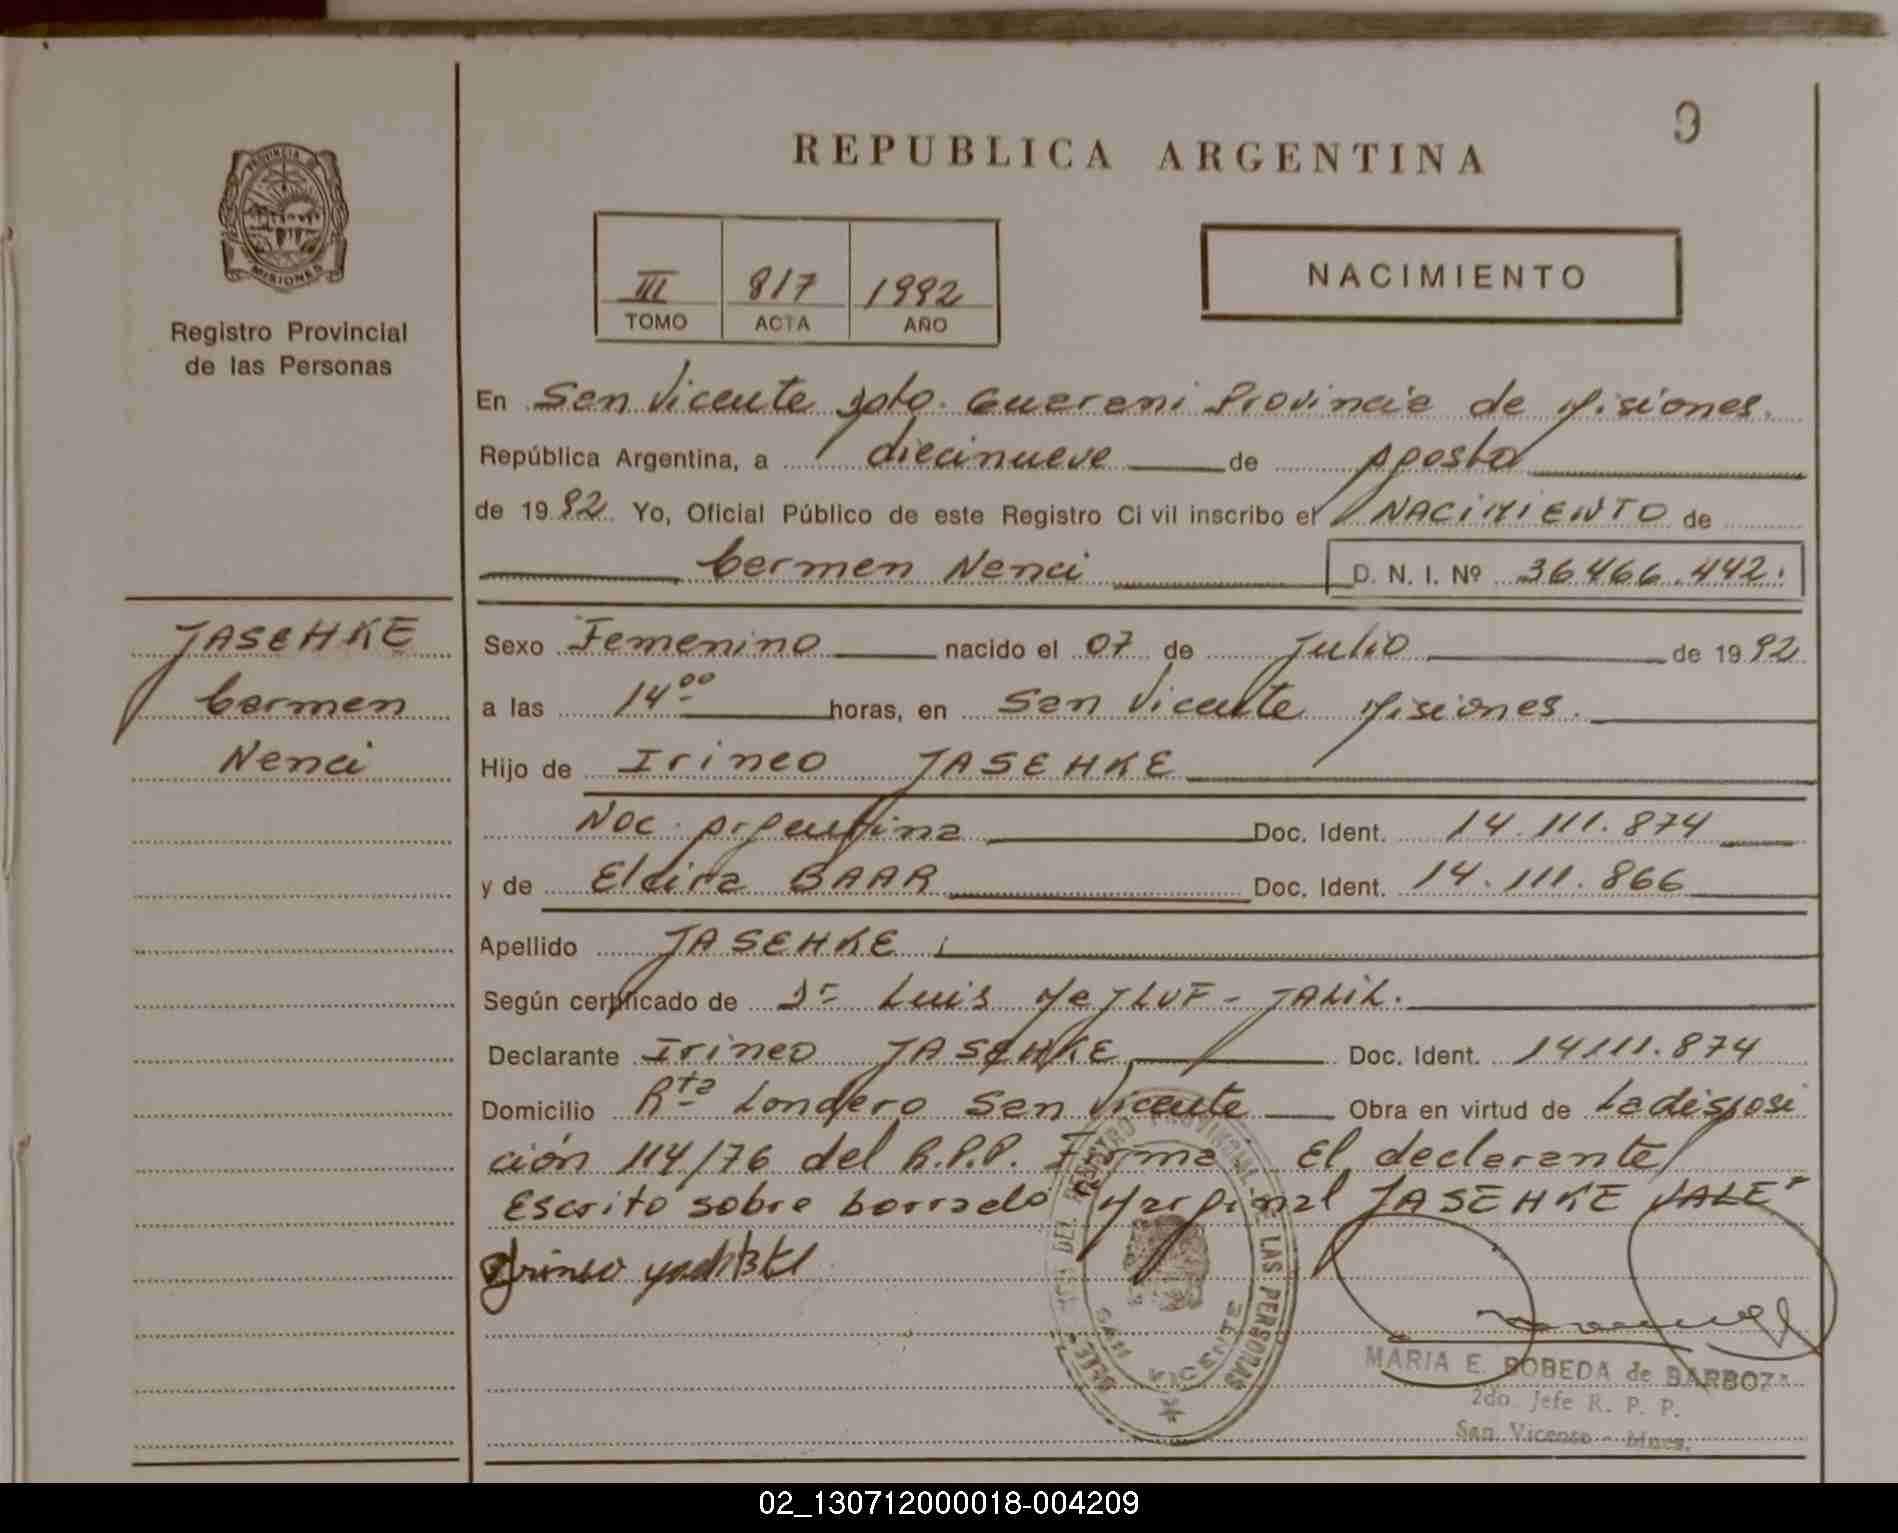 9
REPUBLICA ARGENTINA
PROVINCIA DE
MISIONES
Registro Provincial
de las Personas
III 817 1992
TOMO ACTA AÑO
NACIMIENTO
En San Vicente Dpto. Guarani Provincia de Misiones.
República Argentina, a diecinueve de Agosto
de 1992 Yo, Oficial Público de este Registro Civil inscribo el NACIMIENTO de
Carmen Nanci D. N. I. Nº 36.466.442.
JASEHKE
Carmen
Nanci
Sexo Femenino nacido el 07 de Julio de 1992
a las 14⁰⁰ horas, en San Vicente Misiones.
Hijo de Irineo JASEHKE
Nac. Argentina Doc. Ident. 14.111.874
y de Elcira BAAR Doc. Ident. 14.111.866
Apellido JASEHKE
Según certificado de Dr Luis JALIL.
Declarante Irineo JASEHKE Doc. Ident. 14111.874
Domicilio Rta Londero San Vicente Obra en virtud de La disposi
ción 114/76 del R.P.P. Firma El declarante
Escrito sobre borrado Marginal JASEHKE VALE
DEL REGISTRO PROVINCIAL DE LAS PERSONAS
SAN VICENTE
MARIA E. BOBEDA de BARBOZA
2do. Jefe R. P. P.
San Vicente - Mnes.
02_130712000018-004209